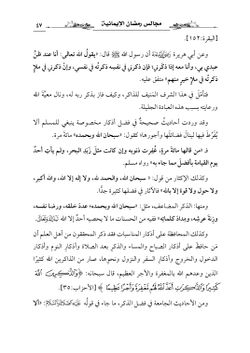 مجالس رمضان الإيمانية ٤٧
[البقرة:١٥٢].
وعن أبي هريرة رضي الله عنه أن رسول الله ﷺ قال: «يقولُ الله تعالى: أنا عند ظنِّ
عبدي بي، وأنا معه إذا ذكرني؛ فإن ذكرني في نفسه ذكرته في نفسي، وإنْ ذكرني في ملأٍ
ذكرته في ملأٍ خيرٍ منهم» متفق عليه.
فتأمَّل في هذا الشرف المُنيف للذاكر، وكيف فاز بذكر ربه له، ونال معيَّة الله
ورعايته بسبب هذه العبادة الجليلة.
وقد وردت أحاديثُ صحيحةٌ في فضل أذكار مخصوصة ينبغي للمسلم ألا
يُفرِّط فيها لينالَ فضائلَها وأجورها؛ كقول: «سبحان الله وبحمده» مائة مرة.
فـ «من قالها مائةَ مرةٍ، غُفِرت ذنوبه وإن كانت مثلَ زَبَد البحر، ولم يأت أحدٌ
يوم القيامة بأفضلَ مما جاء به» رواه مسلم.
وكذلك الإكثار من قول: «سبحان الله، والحمد لله، ولا إله إلا الله، والله أكبر،
ولا حول ولا قوة إلا بالله» فالآثار في فضلها كثيرة جدًّا.
ومنها: الذكر المضاعف، مثل: «سبحان الله وبحمده؛ عددَ خلقه، ورضا نفسه،
وزنةَ عرشِه، ومِدادَ كلماته» ففيه من الحسنات ما لا يحصي أحدٌ إلا الله
وكذلك المحافظة على أذكار المناسبات فقد ذكر المحققون من أهل العلم أن
مَن حافظ على أذكار الصباح والمساء والذكر بعد الصلاة وأذكار النوم وأذكار
الدخول، والخروج وأذكار السفر والنزول ونحوها، صار من الذاكرين الله كثيرًا
الذين وعدهم الله بالمغفرة والأجر العظيم، قال سبحانه: ﴿وَالذَّاكِرِينَ اللَّهَ
كَثِيرًا وَالذَّاكِرَاتِ أَعَدَّ اللَّهُ لَهُم مَّغْفِرَةً وَأَجْرًا عَظِيمًا﴾ [الأحزاب:٣٥].
ومن الأحاديث الجامعة في فضل الذكر، ما جاء في قوله عليه الصلاة والسلام: «ألا